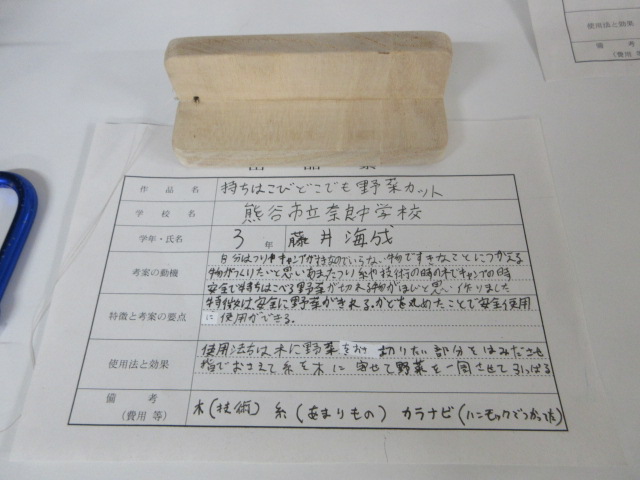 出品票
作品名 持ちはこびどこでも野菜カット
学校名 熊谷市立奈良中学校
学年・氏名 3年 藤井海成
考案の動機 自分はつりやキャンプが好きなのでいらない物ですきなことにつかえる
物がつくりたいと思いあまったつり糸や技術の時の木でキャンプの時
安全で持ちはこべる野菜が切れる物がほしいと思い作りました
特徴と考案の要点 特徴は安全に野菜がきれる。かどを丸めたことで安全使用
に使用ができる。
使用法と効果 使用法は木に野菜をおき切りたい部分をはみださせ
指でおさえて糸を木に寄せて野菜を一周させて引っぱる
備考
(費用 等) 木(技術) 糸(あまりもの) カラナビ(ハンモックでつかってた)
使用法と効
備考
(費用 等